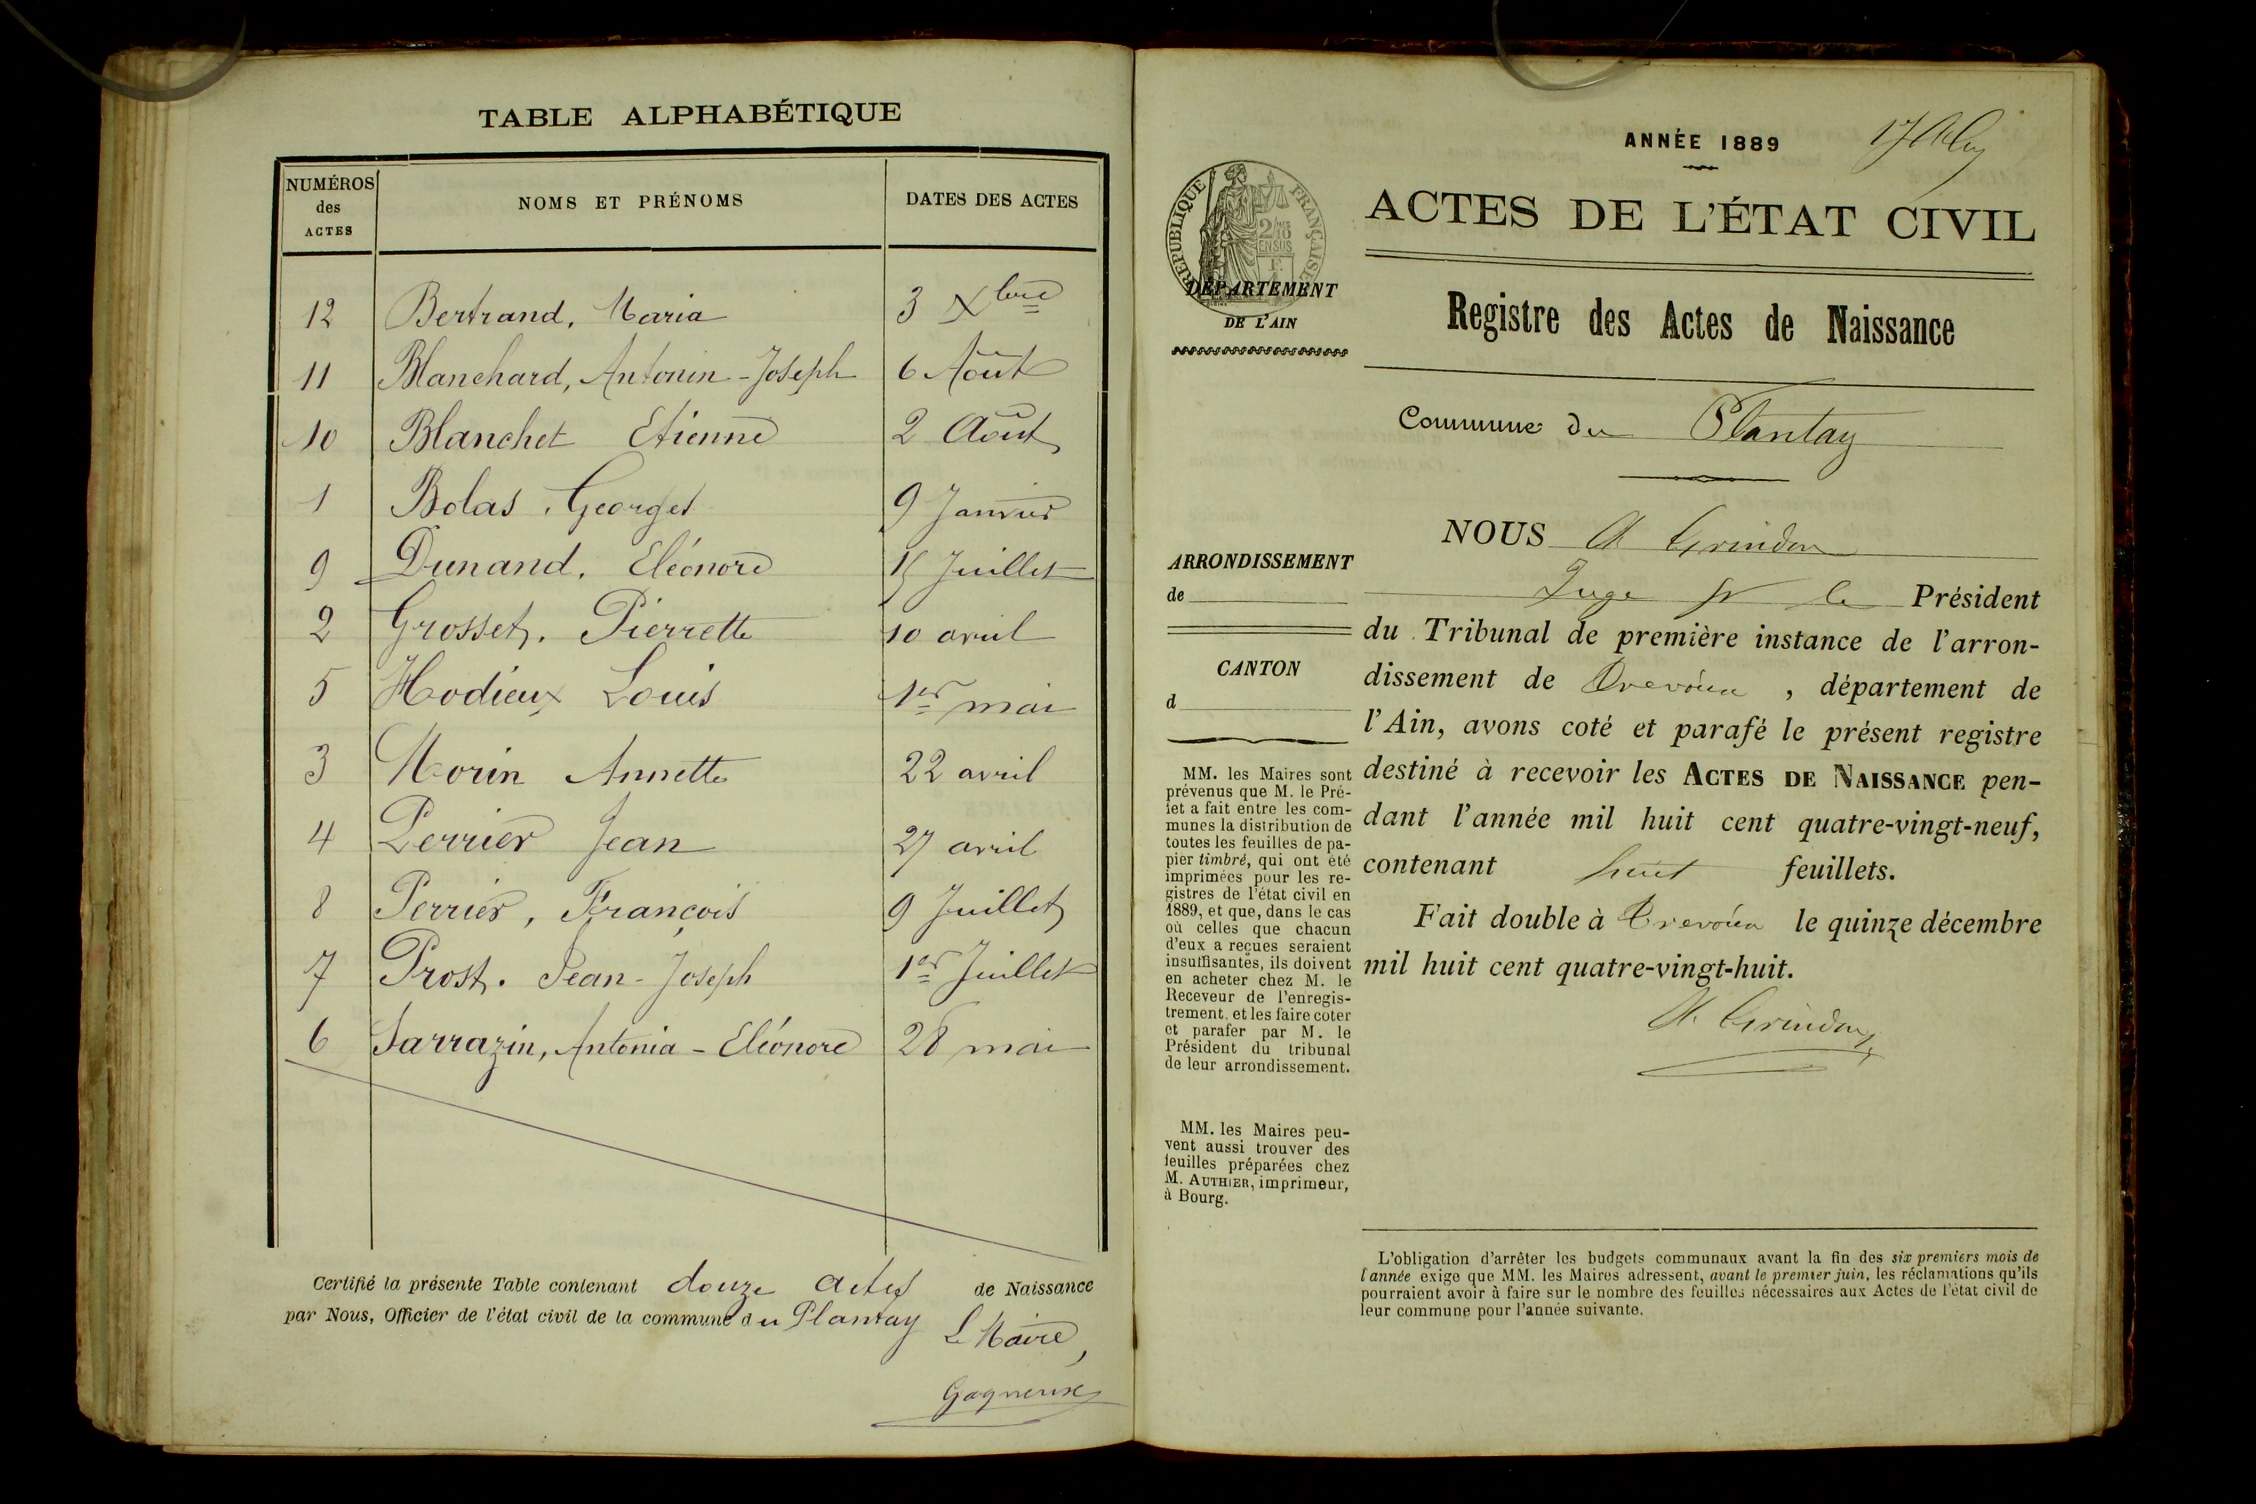 TABLE ALPHABÉTIQUE
NUMÉROS des ACTES NOMS ET PRÉNOMS DATES DES ACTES
12 Bertrand, Maria 3 Xbre
11 Blanchard, Antonin-Joseph 6 Août
10 Blanchet Etienne 2 Août
1 Bolas, Georges 9 Janvier
9 Dunand, Eléonore 15 Juillet
2 Grosset, Pierrette 10 avril
5 Hodieux Louis 1er mai
3 Morin Annette 22 avril
4 Perrier Jean 27 avril
8 Perrier, François 9 Juillet
7 Prost, Jean-Joseph 1er Juillet
6 Sarrazin, Antonia-Eléonore 28 mai
Certifié la présente Table contenant douze actes de Naissance
par Nous, Officier de l'état civil de la commune du Plantay
Le Maire,
Gagneux
ANNÉE 1889
ACTES DE L'ÉTAT CIVIL
RÉPUBLIQUE FRANÇAISE
DÉPARTEMENT
DE L'AIN
Registre des Actes de Naissance
Commune du Plantay
ARRONDISSEMENT
de
CANTON
d
MM. les Maires sont
prévenus que M. le Pré-
fet a fait entre les com-
munes la distribution de
toutes les feuilles de pa-
pier timbré, qui ont été
imprimées pour les re-
gistres de l'état civil en
1889, et que, dans le cas
où celles que chacun
d'eux a reçues seraient
insuffisantes, ils doivent
en acheter chez M. le
Receveur de l'enregis-
trement, et les faire coter
et parafer par M. le
Président du tribunal
de leur arrondissement.
MM. les Maires peu-
vent aussi trouver des
feuilles préparées chez
M. AUTHIER, imprimeur,
à Bourg.
NOUS A Grindon
Juge pr le Président
du Tribunal de première instance de l'arron-
dissement de Trevoux, département de
l'Ain, avons coté et parafé le présent registre
destiné à recevoir les ACTES DE NAISSANCE pen-
dant l'année mil huit cent quatre-vingt-neuf,
contenant huit feuillets.
Fait double à Trevoux le quinze décembre
mil huit cent quatre-vingt-huit.
A. Grindon
L'obligation d'arrêter les budgets communaux avant la fin des six premiers mois de
l'année exige que MM. les Maires adressent, avant le premier juin, les réclamations qu'ils
pourraient avoir à faire sur le nombre des feuilles nécessaires aux Actes de l'état civil de
leur commune pour l'année suivante.